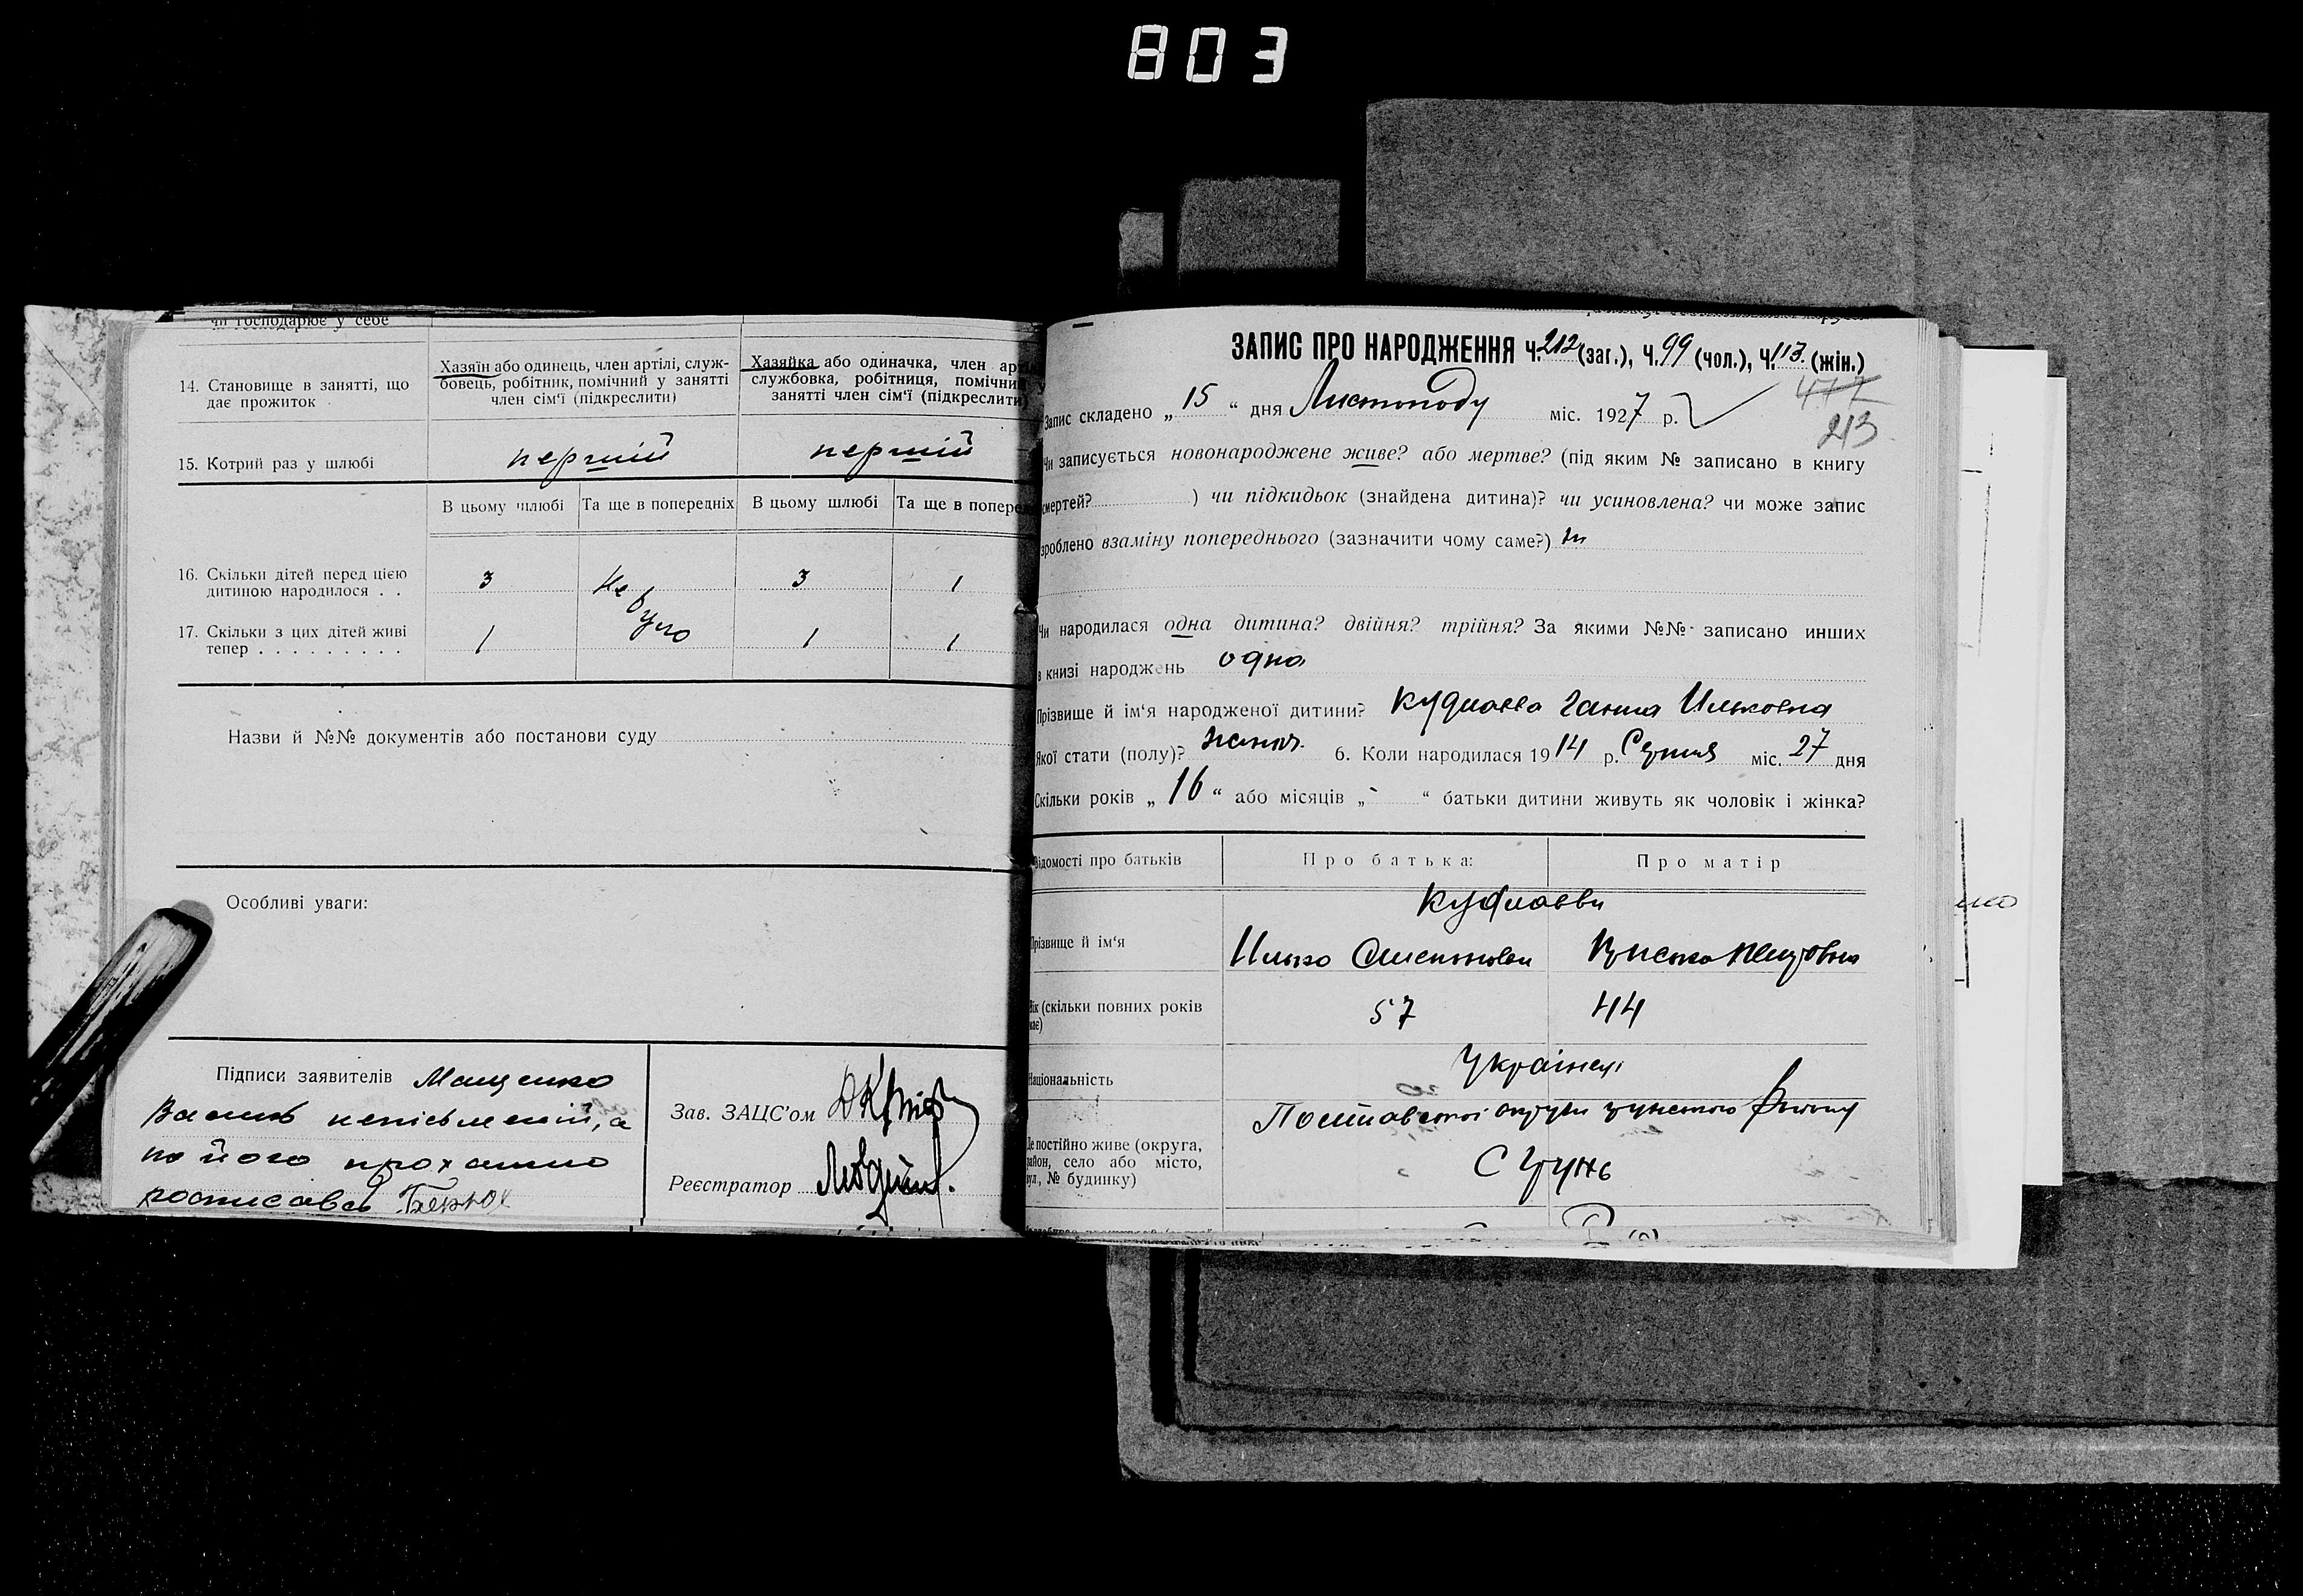 803
чи господарює у себе
14. Становище в занятті, що дає прожиток
Хазяїн або одинець, член артілі, служ-
бовець, робітник, помічний у занятті
член сім‘ї (підкреслити)
Хазяйка або одиначка, член
службовка, робітниця, помічни
занятті член сім‘ї (підкреслити)
15. Котрий раз у шлюбі перший перший
В цьому шлюбі Та ще в попередніх В цьому шлюбі Та ще в попере
16. Скільки дітей перед цією
дитиною народилося . . 3 Не 3 1
було
17. Скільки з цих дітей живі
тепер . . . . . . . . . 1 1 1
Назви й №№ документів або постанови суду
Особливі уваги:
Підписи заявителів Мащенко
неписьмений, а
по його проханню
росписався
Зав. ЗАЦС’ом
Реєстратор
ЗАПИС ПРО НАРОДЖЕННЯ Ч. 212 (заг.), Ч. 99 (чол.), Ч. 113. (жін.)
477
213
Запис складено „ 15 “ дня Листопаду міс. 1927 р.
Чи записується новонароджене живе? або мертве? (під яким № записано в книгу
смертей? ) чи підкидьок (знайдена дитина)? чи усиновлена? чи може запис
зроблено взаміну попереднього (зазначити чому саме?) ні
Чи народилася одна дитина? двійня? трійня? За якими №№ записано инших
в книзі народжень одна
Прізвище й ім‘я народженої дитини? Ганна Ильковна
Якої стати (полу)? жіноч. 6. Коли народилася 1914 р. Серпня міс. 27 дня
Скільки років „ 16 “ або місяців „ - “ батьки дитини живуть як чоловік і жінка?
Відомості про батьків Про батька: Про матір
Прізвище й ім‘я Илько
Вік (скільки повних років
має) 57 44
Національність Українці
Де постійно живе (округа,
район, село або місто,
вул., № будинку) Полтавської округи грунського району
С Грунь